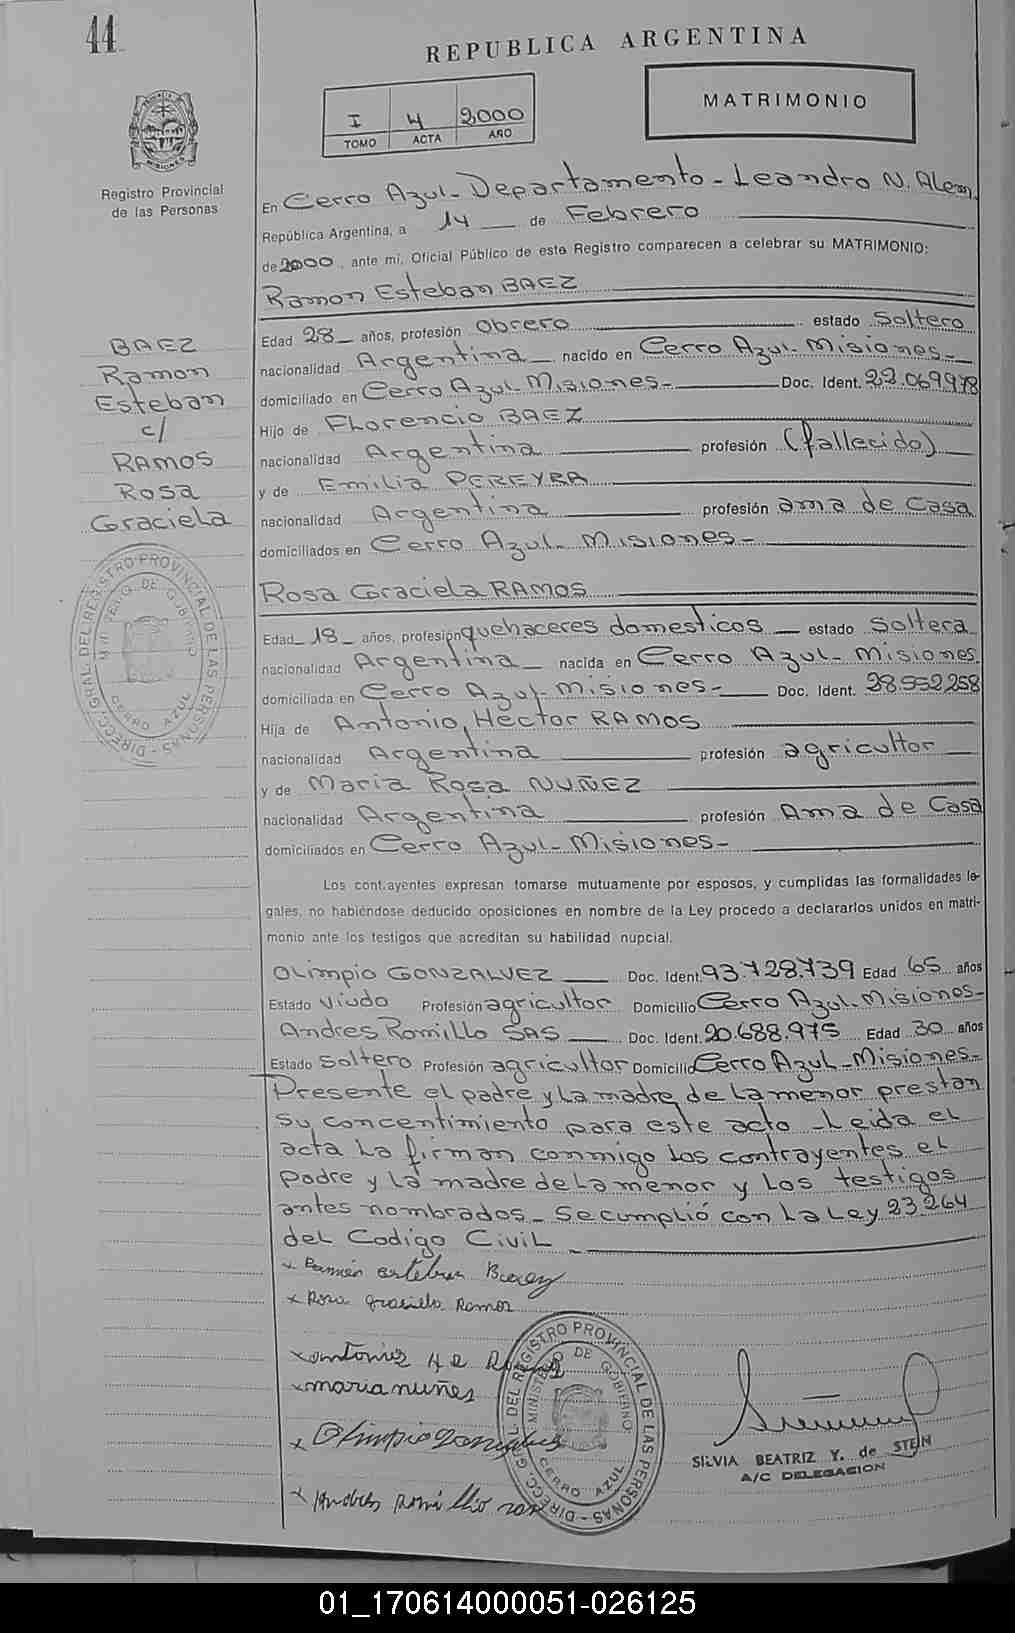 44
REPUBLICA ARGENTINA
I 4 2000
TOMO ACTA AÑO
MATRIMONIO
Registro Provincial
de las Personas
En Cerro Azul - Departamento - Leandro N. Alem
República Argentina, a 14 de Febrero
de 2000, ante mí, Oficial Público de este Registro comparecen a celebrar su MATRIMONIO:
Ramon Esteban BAEZ
Edad 28 años, profesión obrero estado Soltero
nacionalidad Argentina nacido en Cerro Azul - Misiones -
domiciliado en Cerro Azul - Misiones - Doc. Ident. 22.069.978
Hijo de Florencio BAEZ
nacionalidad Argentina profesión (fallecido)
y de Emilia PEREYRA
nacionalidad Argentina profesión ama de Casa
domiciliados en Cerro Azul - Misiones -
BAEZ
Ramon
Esteban
c/
RAMOS
Rosa
Graciela
Rosa Graciela RAMOS
Edad 18 años, profesión quehaceres domesticos estado Soltera
nacionalidad Argentina nacida en Cerro Azul - Misiones
domiciliada en Cerro Azul - Misiones - Doc. Ident. 28.552.258
Hija de Antonio Hector RAMOS
nacionalidad Argentina profesión agricultor
y de Maria Rosa NUÑEZ
nacionalidad Argentina profesión Ama de Casa
domiciliados en Cerro Azul - Misiones -
Los contrayentes expresan tomarse mutuamente por esposos, y cumplidas las formalidades le-
gales, no habiéndose deducido oposiciones en nombre de la Ley procedo a declararlos unidos en matri-
monio ante los testigos que acreditan su habilidad nupcial.
Olimpio GONZALVEZ Doc. Ident. 93.728.739 Edad 65 años
Estado Viudo Profesión agricultor Domicilio Cerro Azul - Misiones -
Andres Romillo SAS Doc. Ident. 20.688.975 Edad 30 años
Estado Soltero Profesión agricultor Domicilio Cerro Azul - Misiones -
Presente el padre y la madre de la menor prestan
su concentimiento para este acto - Leida el
acta la firman conmigo los contrayentes el
padre y la madre de la menor y los testigos
antes nombrados - Se cumplió con la Ley 23.264
del Codigo Civil -
x Ramón esteban Baez
x Rosa graciela Ramos
x antonio
x maria nuñes
x Olimpio
x Andres
DIRECC. GRAL. DEL REGISTRO PROVINCIAL DE LAS PERSONAS
MINISTERIO DE GOBIERNO
CERRO AZUL
SILVIA BEATRIZ Y. de STEIN
A/C DELEGACION
01_170614000051-026125